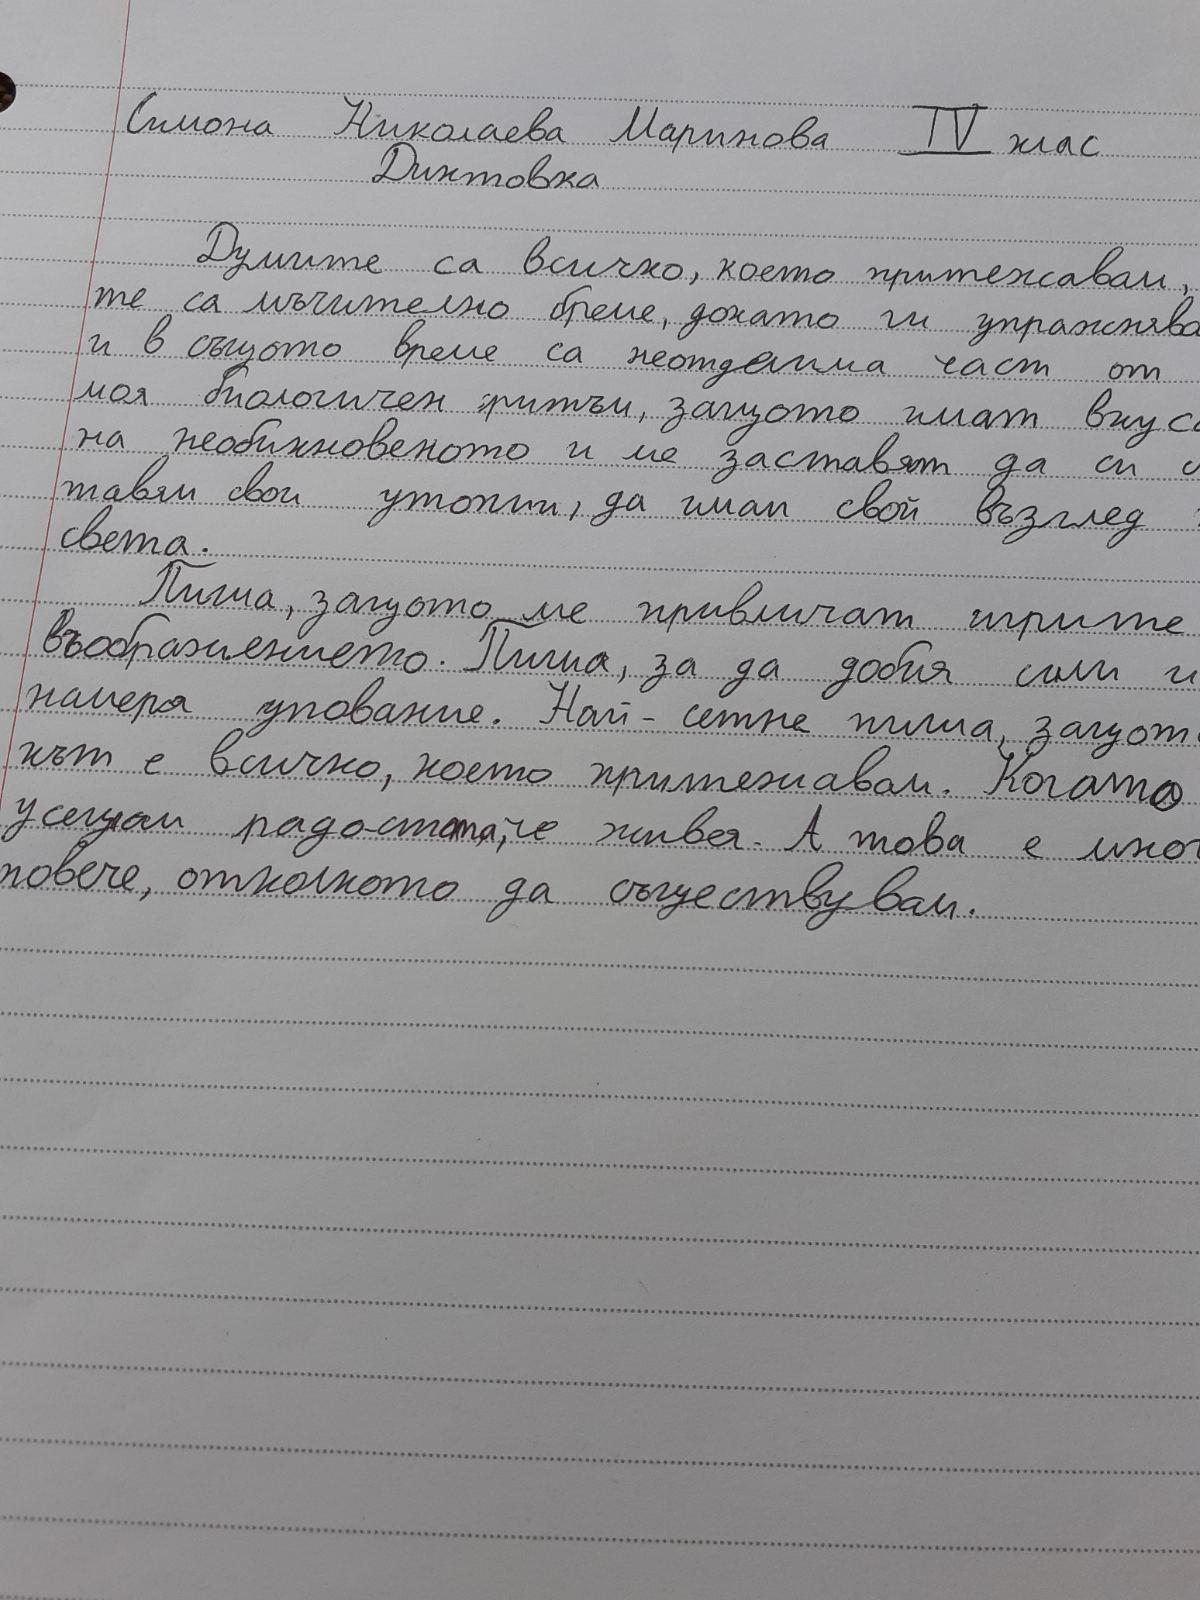 Симона Николаева Маринова IV клас
Диктовка
Думите са всичко, което притежавам,
те са мъчително бреме, докато ги
и в същото време са неотделима част от
моя биологичен ритъм, защото имат
на необикновеното и ме заставят да си
тавям свои утопии, да имам свой възглед
света.
Пиша, защото ме привличат игрите
въображението. Пиша, за да добия сили и
намеря упование. Най-сетне пиша,
кът е всичко, което притежавам. Когато
усещам радостта, че живея. А това е
повече, отколкото да съществувам.